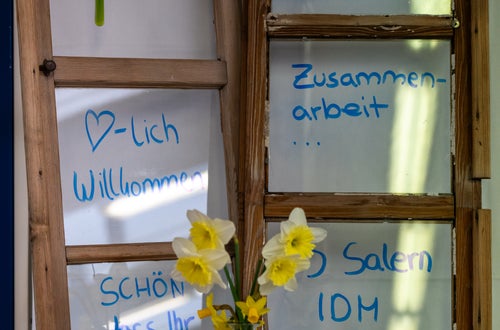 ♡-lich
Willkommen
SCHÖN
dass Ihr
Zusammen-
arbeit
...
Salern
IDM